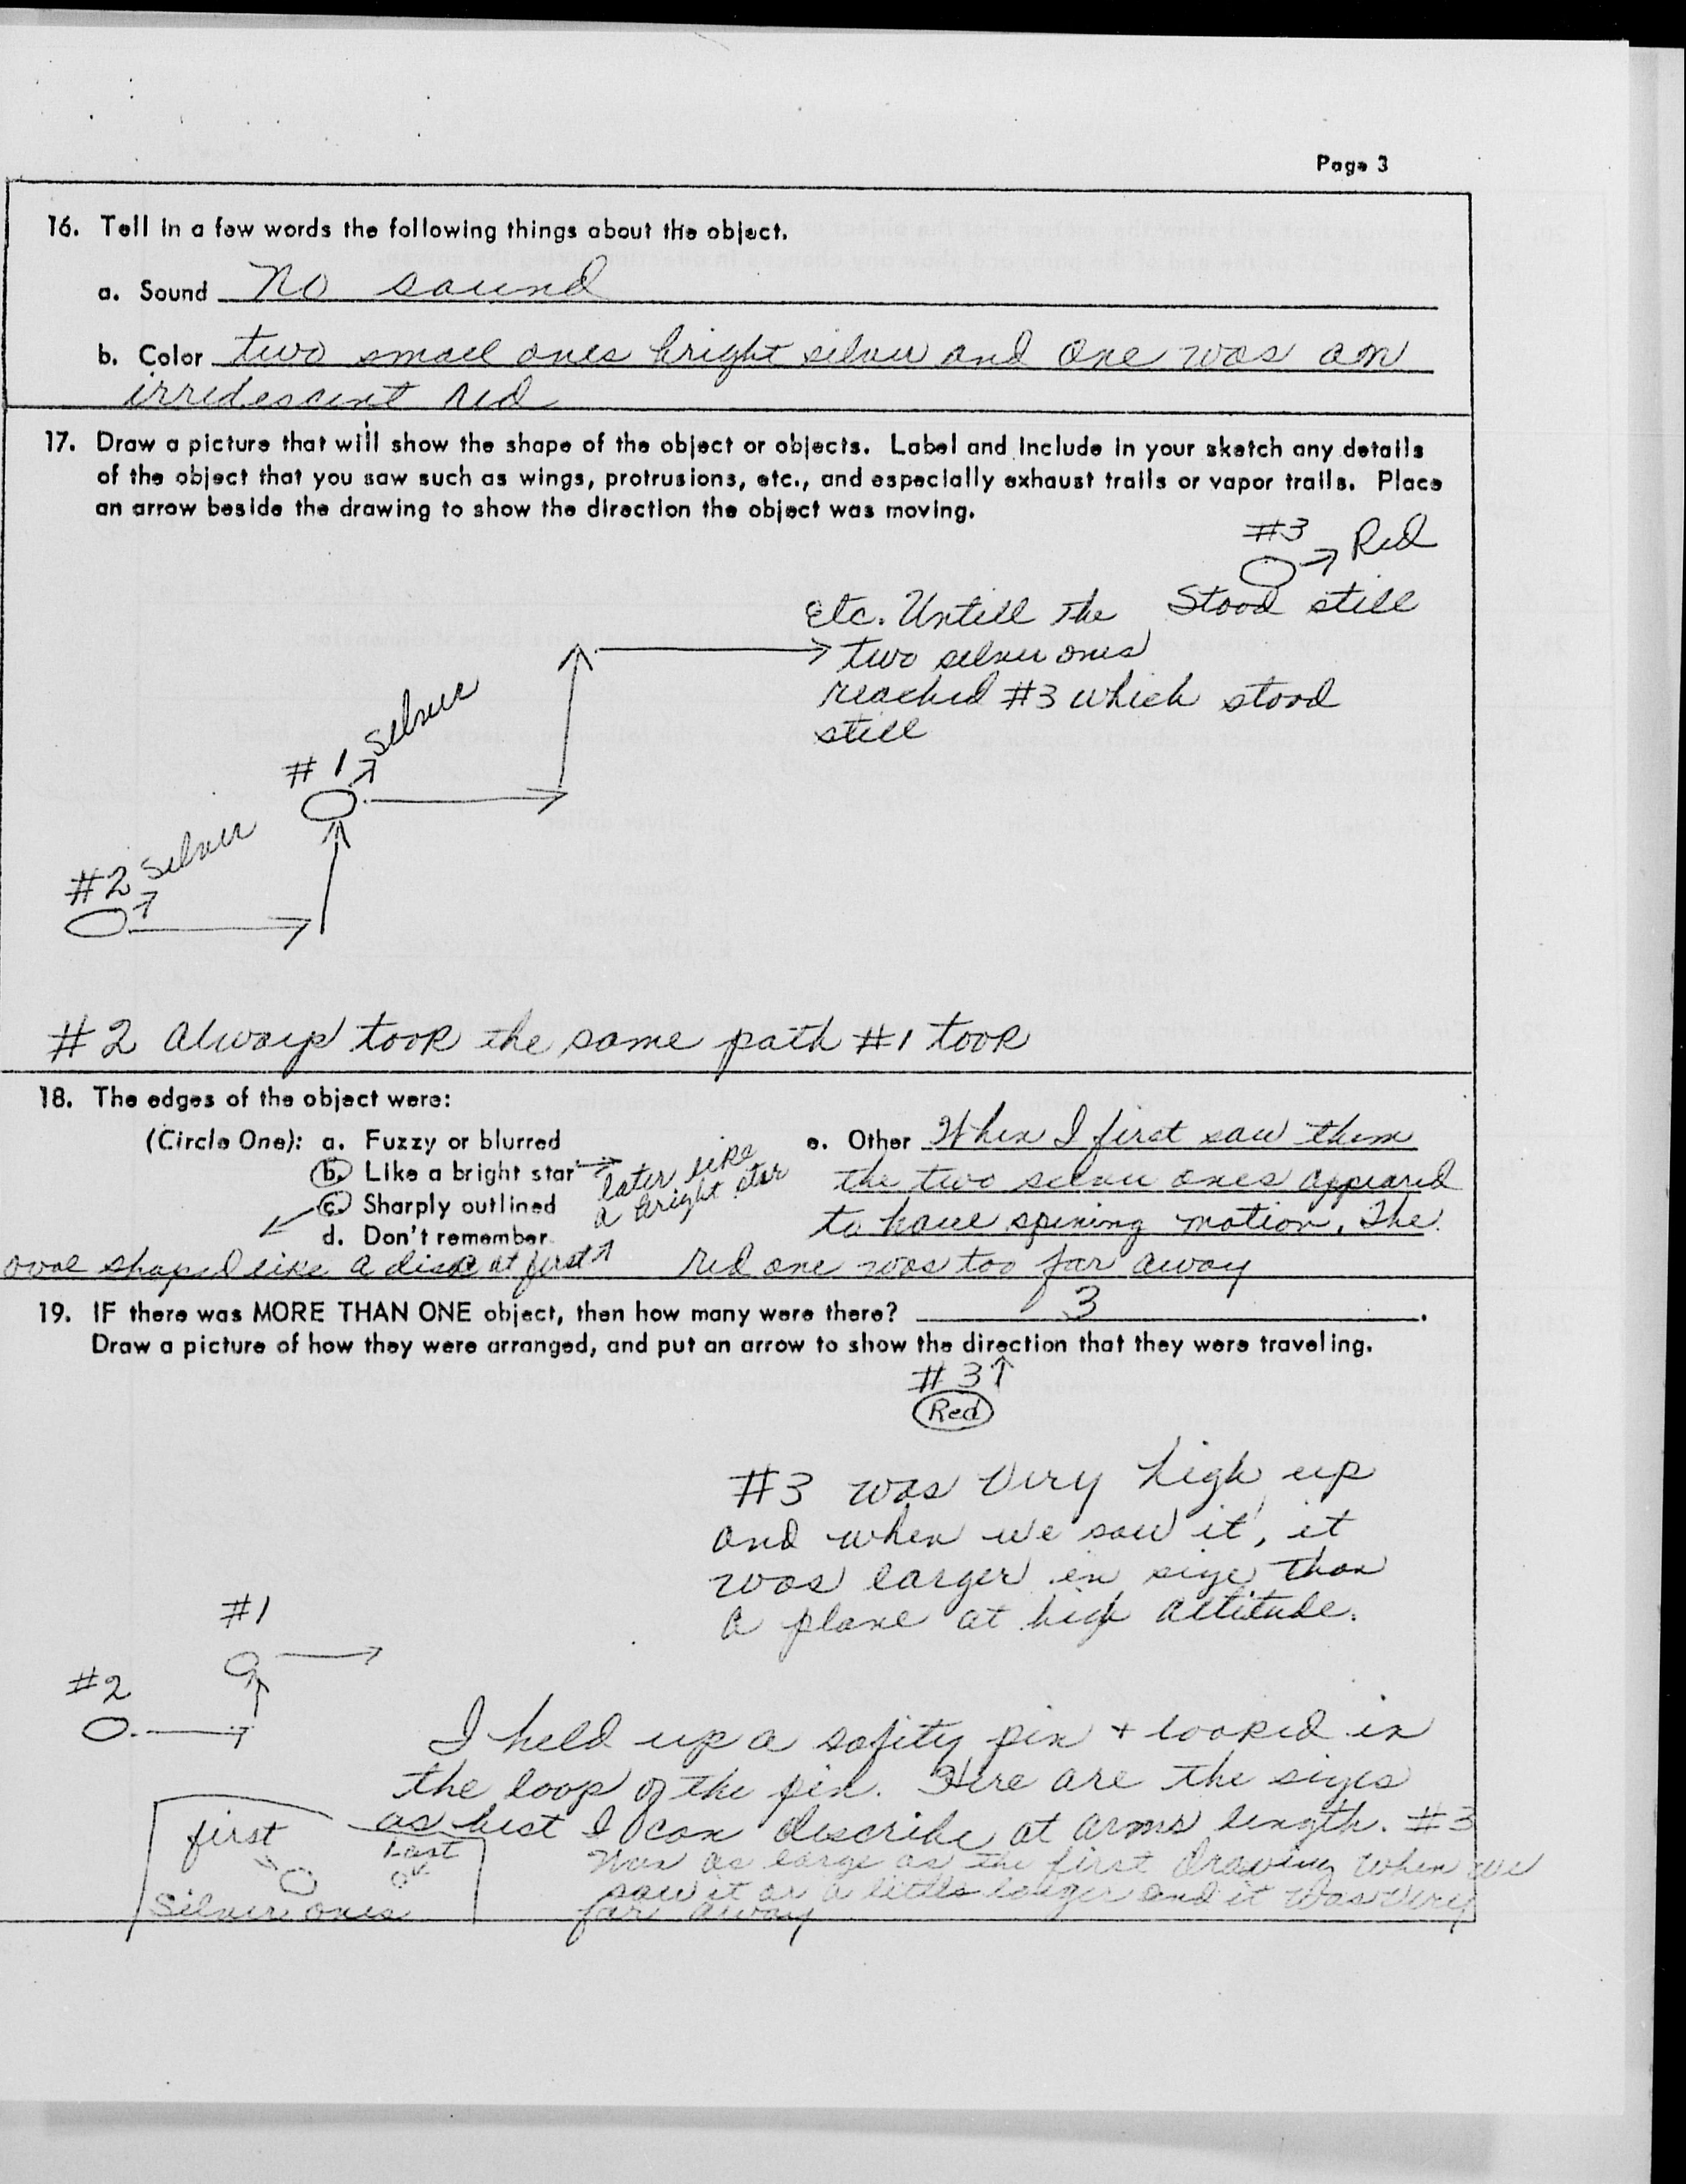 Page 3
16. Tell in a few words the following things about the object.
a. Sound no sound
b. Color two small ones bright silver and one was an
irridescent red
17. Draw a picture that will show the shape of the object or objects. Label and include in your sketch any details
of the object that you saw such as wings, protrusions, etc., and especially exhaust trails or vapor trails. Place
an arrow beside the drawing to show the direction the object was moving.
#3
Red
Stood still
etc. Untill the
two silver ones
reached #3 which stood
still
#1 silver
#2 silver
#2 always took the same path #1 took
18. The edges of the object were:
(Circle One): a. Fuzzy or blurred
b. Like a bright star
later like
a bright star
c. Sharply outlined
d. Don't remember
oval shaped like a disc at first
e. Other When I first saw them
the two silver ones appeared
to have spining motion. The
red one was too far away
19. IF there was MORE THAN ONE object, then how many were there? 3.
Draw a picture of how they were arranged, and put an arrow to show the direction that they were traveling.
#3
Red
#3 was very high up
and when we saw it, it
was larger in size than
a plane at high altitude.
#1
#2
I held up a safity pin + looked in
the loop of the pin. Here are the sizes
as best I can describe at arms length. #3
was as large as the first drawing when we
saw it or a little larger and it was very
far away
first
Last
Silver ones